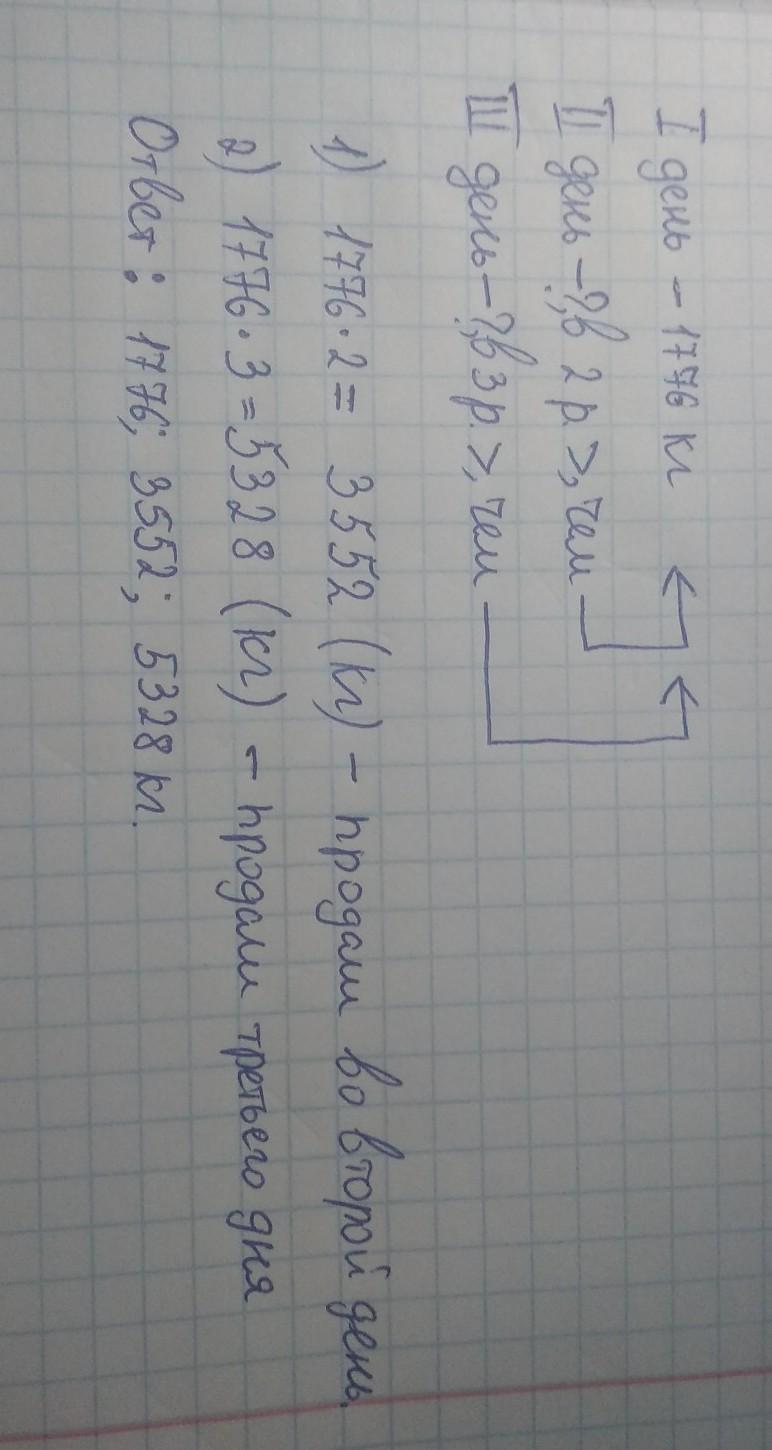 I день – 1776 кг
II день –?, в 2 р. >, чем
III день –?, в 3 р. >, чем
1) 1776·2= 3552 (кг) – продали во второй день.
2) 1776·3=5328 (кг) – продали третьего дня
Ответ: 1776; 3552; 5328 кг.